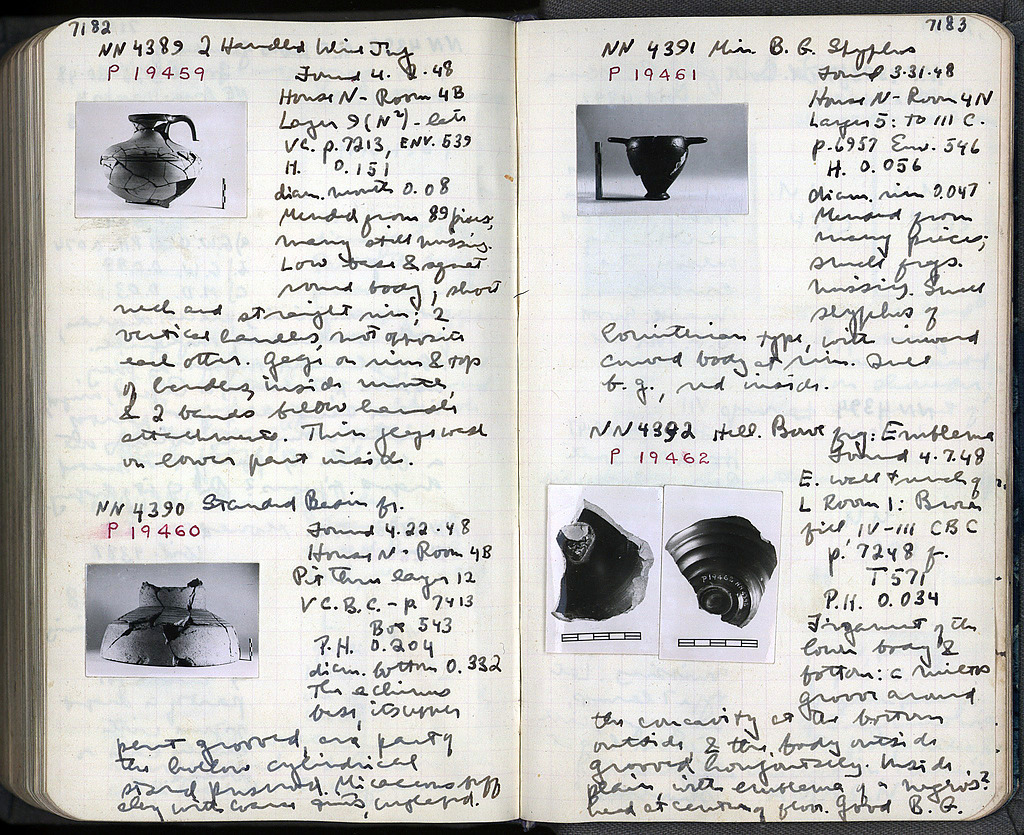 7182
NN 4389 2 Handled Wine Jug
P 19459
Found 4. 2. 48
House N - Room 4B
Layer 9 (N²) - late
VC. p. 7213, ENV. 539
H. 0.151
diam. mouth 0.08
Mended from 89 pieces,
many still missing.
Low base & squat
round body; short
neck and straight rim; 2
vertical handles, not opposite
each other. Glaze on rim & top
of handles, inside mouth,
& 2 bands below handle
attachments. Thin glaze wash
on lower part inside.
NN 4390 Standed Basin fr.
P 19460
Found 4.22.48
House N - Room 4B
Pit thru layer 12
V C. B.C. - p. 7413
Box 543
P.H. 0.204
diam. bottom 0.332
The echinus
base, its upper
part grooved, and part of
the hollow cylindrical
stand preserved. Micaceous buff
clay with coarse grits, unglazed.
7183
NN 4391 Min. B. G. Skyphos
P 19461
Found 3.31.48
House N - Room 4N
Layer 5: to III C.
p. 6957 Env. 546
H. 0.056
diam. rim 0.047
Mended from
many pieces;
small frgs.
missing. Small
skyphos of
Corinthian type, with inward
curved body at rim. Dull
b. g., red inside.
NN 4392 Hell. Bowl frg: Emblema
P 19462
Found 4.7.48
E. wall trench of
L Room 1: Brown
fill, IV-III C BC
p. 7248 f.
T 571
P.H. 0.034
Fragment of the
lower body &
bottom: a miltos
groove around
the concavity at the bottom
outside, & the body outside
grooved horizontally. Inside
plain, with emblema of a negro's?
head at center of floor. Good B. G.